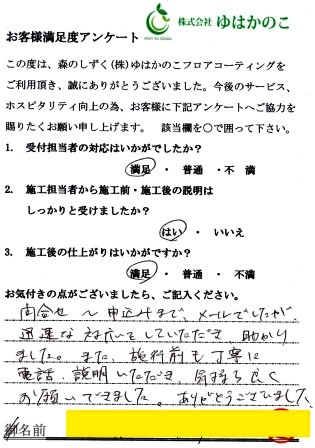 株式会社 ゆはかのこ
お客様満足度アンケート
この度は、森のしずく(株)ゆはかのこフロアコーティングを
ご利用頂き、誠にありがとうございました。今後のサービス、
ホスピタリティ向上の為、お客様に下記アンケートへご協力を
賜りたくお願い申し上げます。 該当欄を○で囲って下さい。
1. 受付担当者の対応はいかがでしたか?
満足 ・ 普通 ・不 満
2. 施工担当者から施工前・施工後の説明は
しっかりと受けましたか?
はい ・ いいえ
3. 施工後の仕上がりはいかがですか?
満足 ・ 普通 ・ 不満
お気付きの点がございましたら、ご記入ください。
問合せ〜申込みまで、メールでしたが、
迅速な対応をしていただき 助かり
ました。また、施行前も丁寧に
電話 説明いただき、気持ち良く
お願いできました。ありがとうございました。
名前